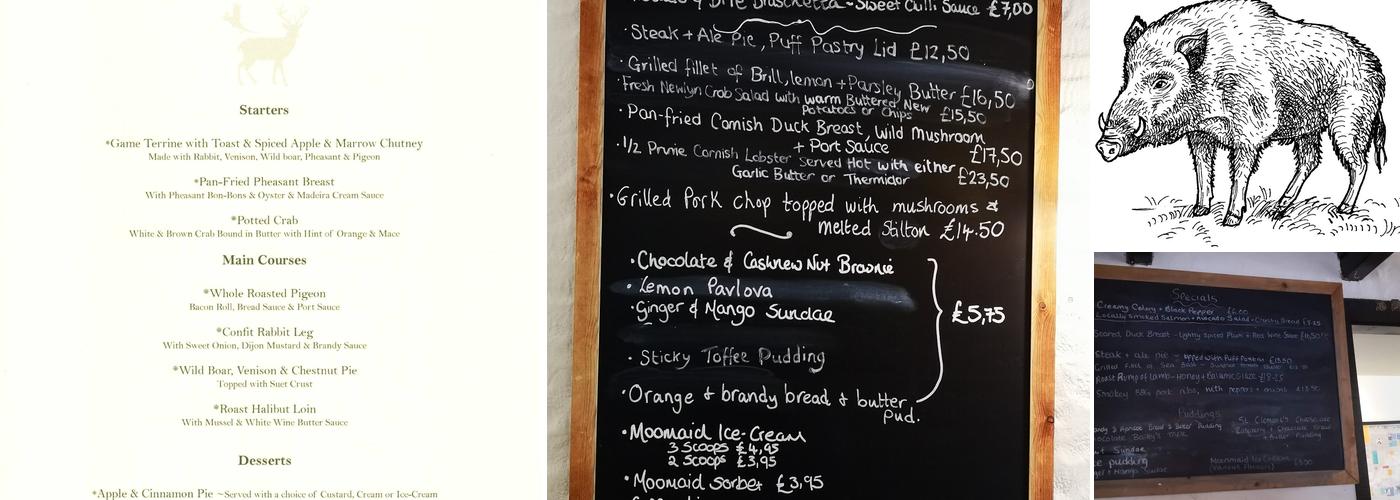 Starters
*Game Terrine with Toast & Spiced Apple & Marrow Chutney
Made with Rabbit, Venison, Wild boar, Pheasant & Pigeon
*Pan-Fried Pheasant Breast
With Pheasant Bon-Bons & Oyster & Madeira Cream Sauce
*Potted Crab
White & Brown Crab Bound in Butter with Hint of Orange & Mace
Main Courses
*Whole Roasted Pigeon
Bacon Roll, Bread Sauce & Port Sauce
*Confit Rabbit Leg
With Sweet Onion, Dijon Mustard & Brandy Sauce
*Wild Boar, Venison & Chestnut Pie
Topped with Suet Crust
*Roast Halibut Loin
With Mussel & White Wine Butter Sauce
Desserts
*Apple & Cinnamon Pie ~Served with a choice of Custard, Cream or Ice-Cream
& Brie Bruschetta - Sweet Chilli Sauce £7,00
· Steak + Ale Pie, Puff Pastry Lid £12,50
· Grilled fillet of Brill, lemon + Parsley Butter £16,50
· Fresh Newlyn Crab Salad with warm Buttered New
Potatoes or Chips £15,50
· Pan-fried Cornish Duck Breast, Wild Mushroom
+ Port Sauce £17,50
· 1/2 Cornish Lobster Served Hot with either
Garlic Butter or Thermidor £23,50
· Grilled Pork Chop topped with mushrooms &
melted Stilton £14.50
· Chocolate & Cashew Nut Brownie
· Lemon Pavlova
· Ginger & Mango Sundae
£5,75
· Sticky Toffee Pudding
· Orange & brandy bread & butter
pud.
· Moomaid Ice-Cream
3 Scoops £4,95
2 Scoops £3,95
· Moomaid Sorbet £3,95
Specials
Creamy Celery + Black Pepper £6.00
Locally Smoked Salmon + Avocado Salad - Crusty Bread
Seared Duck Breast - Lightly spiced Plum + Red Wine Sauce
Steak + ale pie - topped with Puff Pastry £13.50
Grilled Fillet of Sea Bass
Roast Rump of Lamb - Honey + Balsamic Glaze £18.25
Smokey BBQ pork ribs, with peppers + onions £13.50
Puddings
St Clement's Cheesecake
Apricot Bread & Butter Pudding
Raspberry + Chocolate Bread
+ Butter Pudding
Sundae
pudding
Moomaid Ice Cream
(Various Flavours)
Sundae